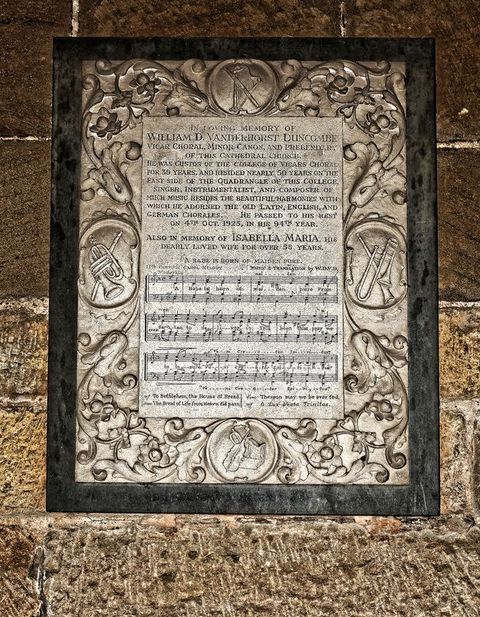 IN LOVING MEMORY OF
WILLIAM D. VANDERHORST DUNCOMBE
VICAR CHORAL, MINOR-CANON, AND PREBENDARY,
OF THIS CATHEDRAL CHURCH.
HE WAS CUSTOS OF THE COLLEGE OF VICARS CHORAL
FOR 39 YEARS, AND RESIDED NEARLY 50 YEARS ON THE
EAST SIDE OF THE QUADRANGLE OF THIS COLLEGE
SINGER, INSTRUMENTALIST, AND COMPOSER OF
MUCH MUSIC BESIDES THE BEAUTIFUL HARMONIES WITH
WHICH HE ADORNED THE OLD LATIN, ENGLISH, AND
GERMAN CHORALES. HE PASSED TO HIS REST
ON 4TH OCT. 1925, IN HIS 94TH YEAR.
ALSO IN MEMORY OF ISABELLA MARIA, HIS
DEARLY LOVED WIFE FOR OVER 58 YEARS.
A BABE IS BORN OF MAIDEN PURE.
CAROL MELODY MUSIC & TRANSLATION BY W.D.V.D.
A Babe is born
To Bethlehem, the House of Bread, Thereon may we be ever fed,
The Bread of Life from Heaven did pass, O Lux Beata Trinitas.